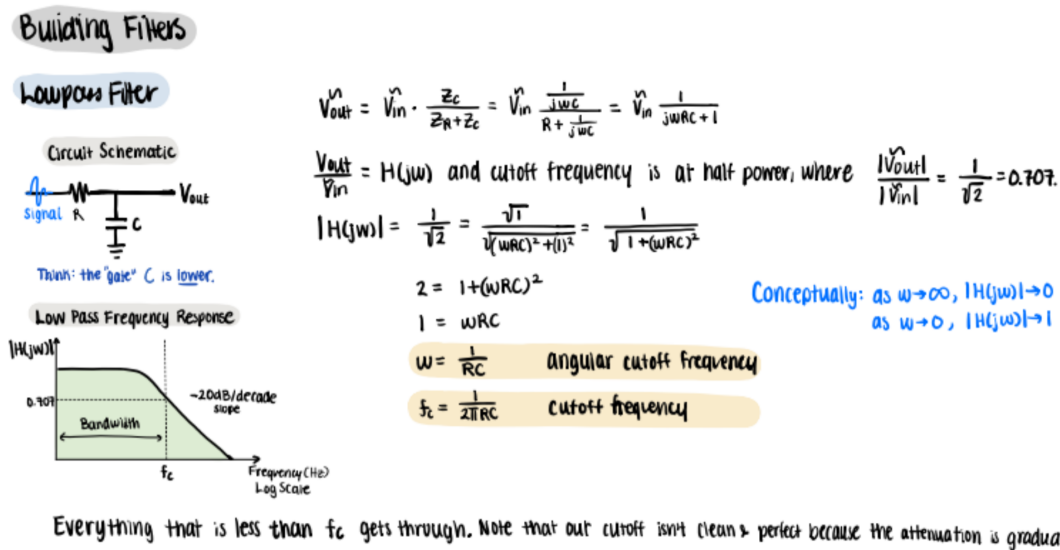 Building Filters
Lowpass Filter
Circuit Schematic
Signal R C Vout
Think: the "gate" C is lower.
Low Pass Frequency Response
|H(jω)|
0.707
-20dB/decade
slope
Bandwidth
fc
Frequency (Hz)
Log Scale
Ṽout = Ṽin · Zc/(ZR+Zc) = Ṽin (1/(jωC))/(R + 1/(jωC)) = Ṽin 1/(jωRC+1)
Ṽout/Ṽin = H(jω) and cutoff frequency is at half power, where |Ṽout|/|Ṽin| = 1/√2 = 0.707.
|H(jω)| = 1/√2 = √1/√((ωRC)²+(1)²) = 1/√(1+(ωRC)²)
2 = 1+(ωRC)²
1 = ωRC
ω = 1/RC angular cutoff frequency
fc = 1/2πRC cutoff frequency
Conceptually: as ω→∞, |H(jω)|→0
as ω→0, |H(jω)|→1
Everything that is less than fc gets through. Note that our cutoff isn't clean & perfect because the attenuation is gradua